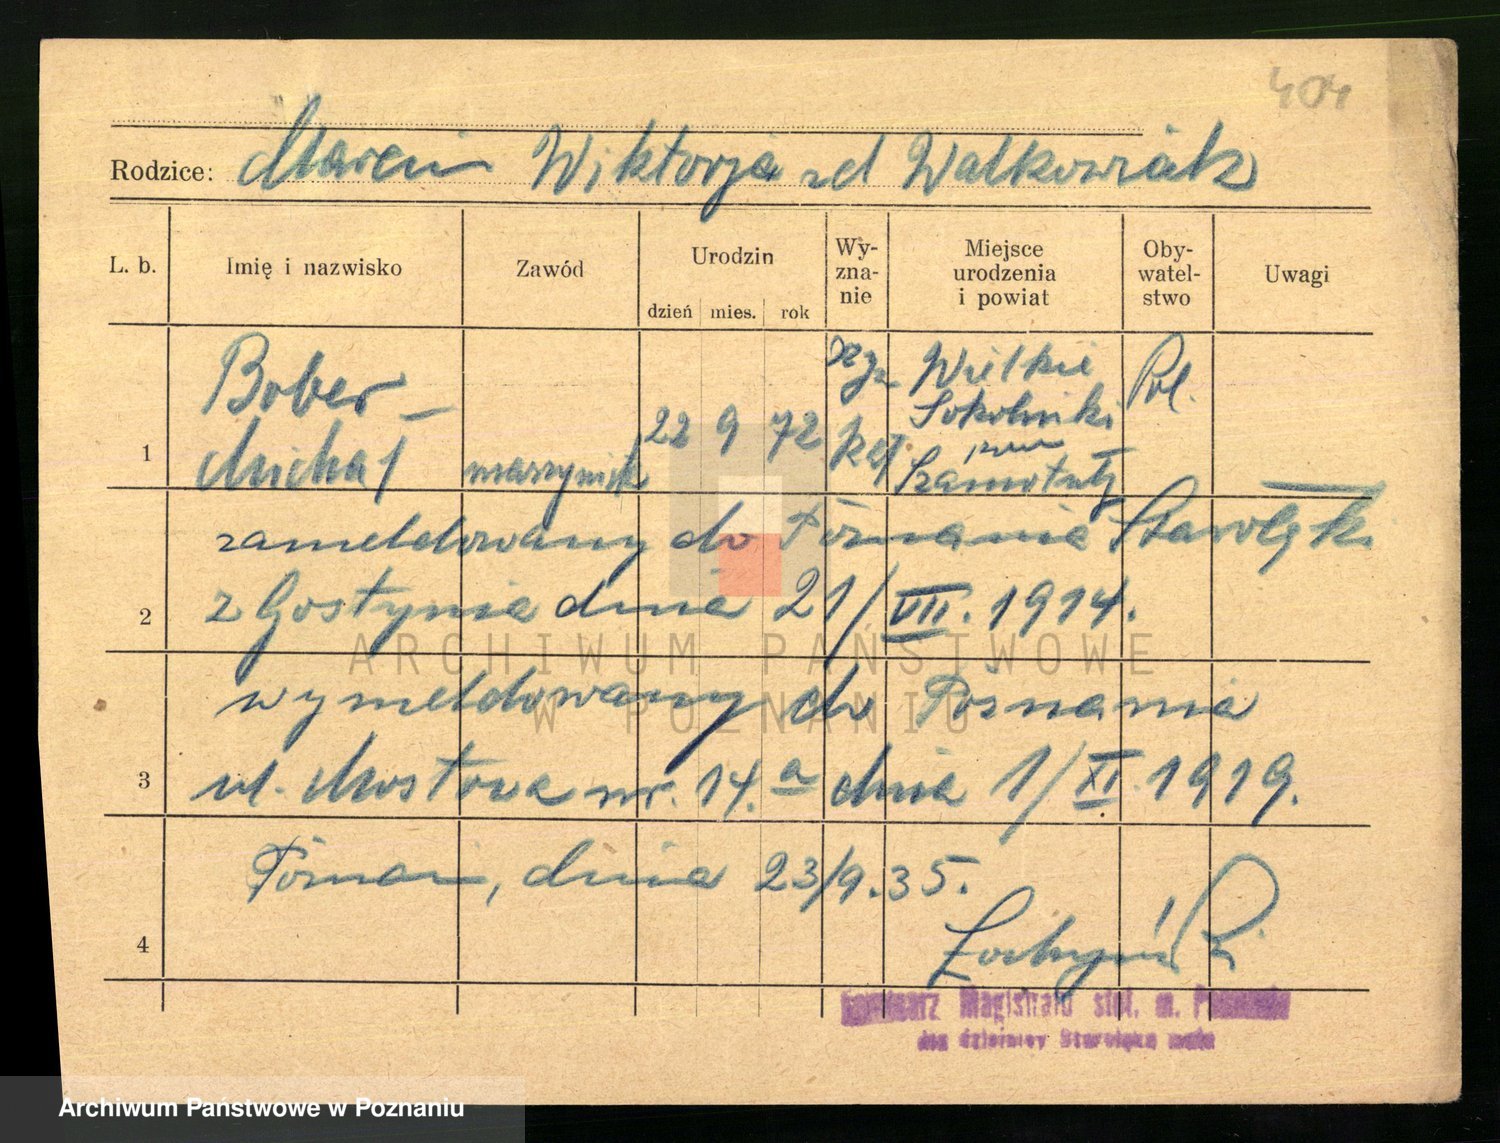 404
Rodzice: Marcin Wiktorja zd Walkowiak
L. b. Imię i nazwisko Zawód Urodzin dzień mies. rok Wy-zna-nie Miejsce urodzenia i powiat Oby-watel-stwo Uwagi
1 Bober Michał maszynista 22 9 72 rzym kat. Wielkie Sokolniki pow Szamotuły Pol.
zameldowany do Poznania Starołęki
2 z Gostynia dnia 21/VII. 1914.
wymeldowany do Poznania
3 ul. Mostowa nr. 14.a dnia 1/XI. 1919.
Poznań, dnia 23/9.35.
4
Komisarz Magistratu stoł. m. Poznania
dla dzielnicy Starołęka mała
ARCHIWUM PAŃSTWOWE
W POZNANIU
Archiwum Państwowe w Poznaniu